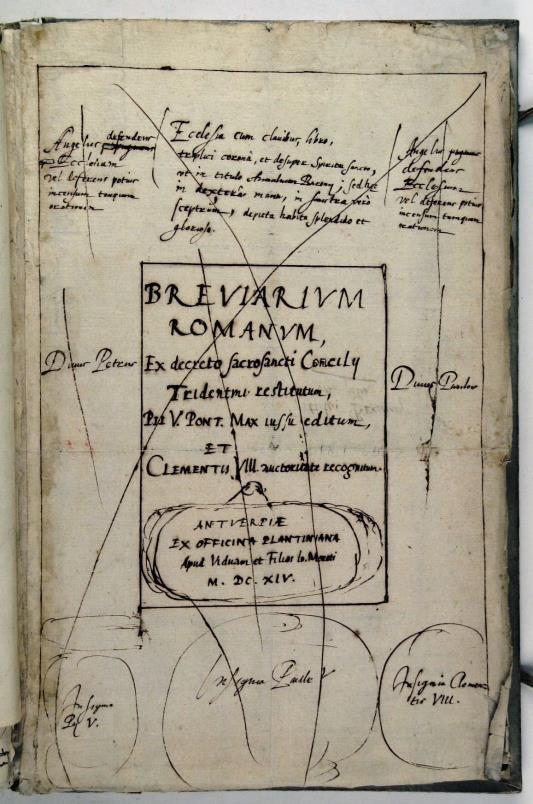 Angelus defendens
Ecclesiam
vel deferens potius
incensum tanquam
orationem
Ecclesia cum clavibus, libro,
triplici corona, et desuper Spiritu sancto,
ut in titulo Annalium ; sed hec
in dextera manu, in sinistra vero
sceptrum, depicta habitu splendido et
glorioso.
Angelus
defendens
Ecclesiam
vel deferens potius
incensum tanquam
orationem
BREVIARIVM
ROMANVM,
Ex decreto sacrosancti Concilij
Tridentini restitutum,
PII V. PONT. MAX iussu editum,
ET
CLEMENTIS VIII. auctoritate recognitum.
Divus Petrus
Divus Paulus
ANTVERPIÆ
EX OFFICINA PLANTINIANA
Apud Viduam et Filios Io. Moreti
M. DC. XIV.
Insignia
Pij V.
Insignia Pauli V
Insignia Clemen-
tis VIII.